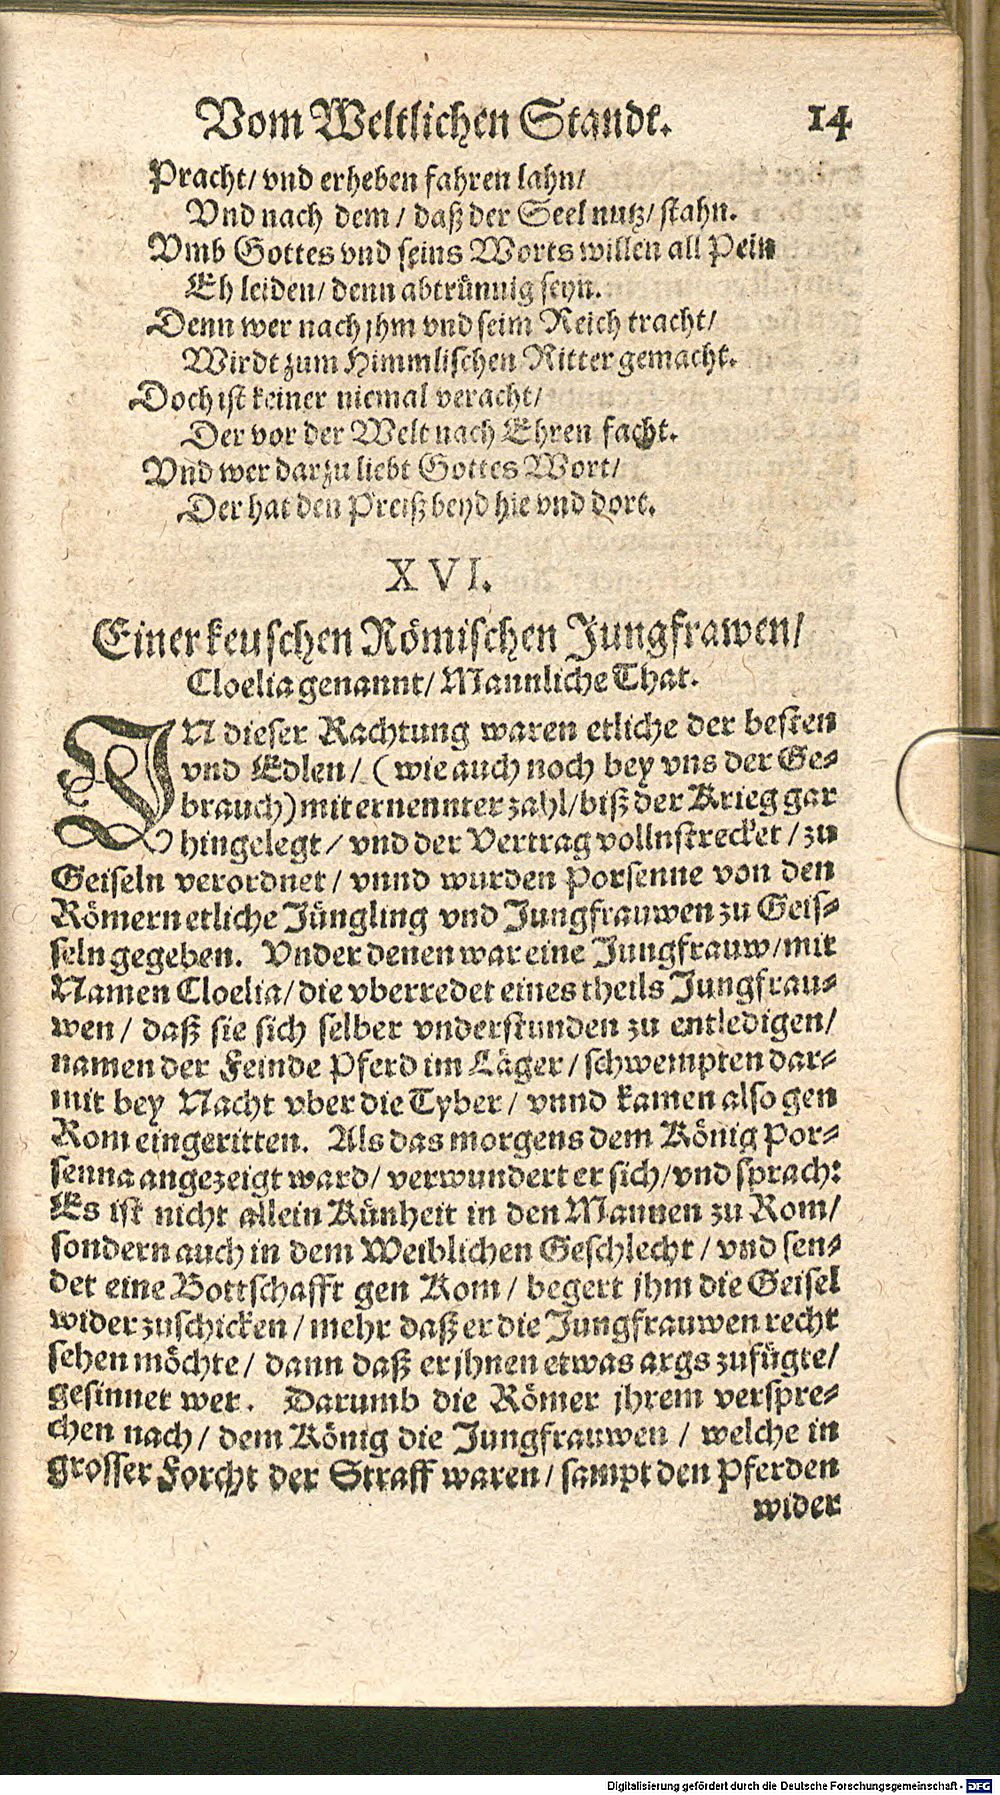 Vom Weltlichen Standt. 14
Pracht/ vnd erheben fahren lahn/
Vnd nach dem / daß der Seel nutz/ stahn.
Vmb Gottes vnd seins Worts willen all Pein
Eh leiden/ denn abtrünnig seyn.
Denn wer nach jhm vnd seim Reich tracht/
Wirdt zum Himmlischen Ritter gemacht.
Doch ist keiner niemal veracht/
Der vor der Welt nach Ehren facht.
Vnd wer darzu liebt Gottes Wort/
Der hat den Preiß beyd hie vnd dort.
XVI.
Einer keuschen Römischen Jungfrawen/
Cloelia genannt/ Mannliche That.
IN dieser Rachtung waren etliche der besten
vnd Edlen/ (wie auch noch bey vns der Ge-
brauch) mit ernennter zahl/ biß der Krieg gar
hingelegt / vnd der Vertrag vollnstrecket / zu
Geiseln verordnet / vnnd wurden Porsenne von den
Römern etliche Jüngling vnd Jungfrauwen zu Geis-
seln gegeben. Vnder denen war eine Jungfrauw/ mit
Namen Cloelia/ die vberredet eines theils Jungfrau-
wen / daß sie sich selber vnderstunden zu entledigen/
namen der Feinde Pferd im Läger / schwempten dar-
mit bey Nacht vber die Tyber / vnnd kamen also gen
Rom eingeritten. Als das morgens dem König Por-
senna angezeigt ward/ verwundert er sich/ vnd sprach:
Es ist nicht allein Künheit in den Mannen zu Rom/
sondern auch in dem Weiblichen Geschlecht / vnd sen-
det eine Bottschafft gen Rom / begert jhm die Geisel
wider zuschicken / mehr daß er die Jungfrauwen recht
sehen möchte / dann daß er jhnen etwas args zufügte/
gesinnet wer. Darumb die Römer jhrem verspre-
chen nach / dem König die Jungfrauwen / welche in
grosser Forcht der Straff waren / sampt den Pferden
wider
Digitalisierung gefördert durch die Deutsche Forschungsgemeinschaft - DFG